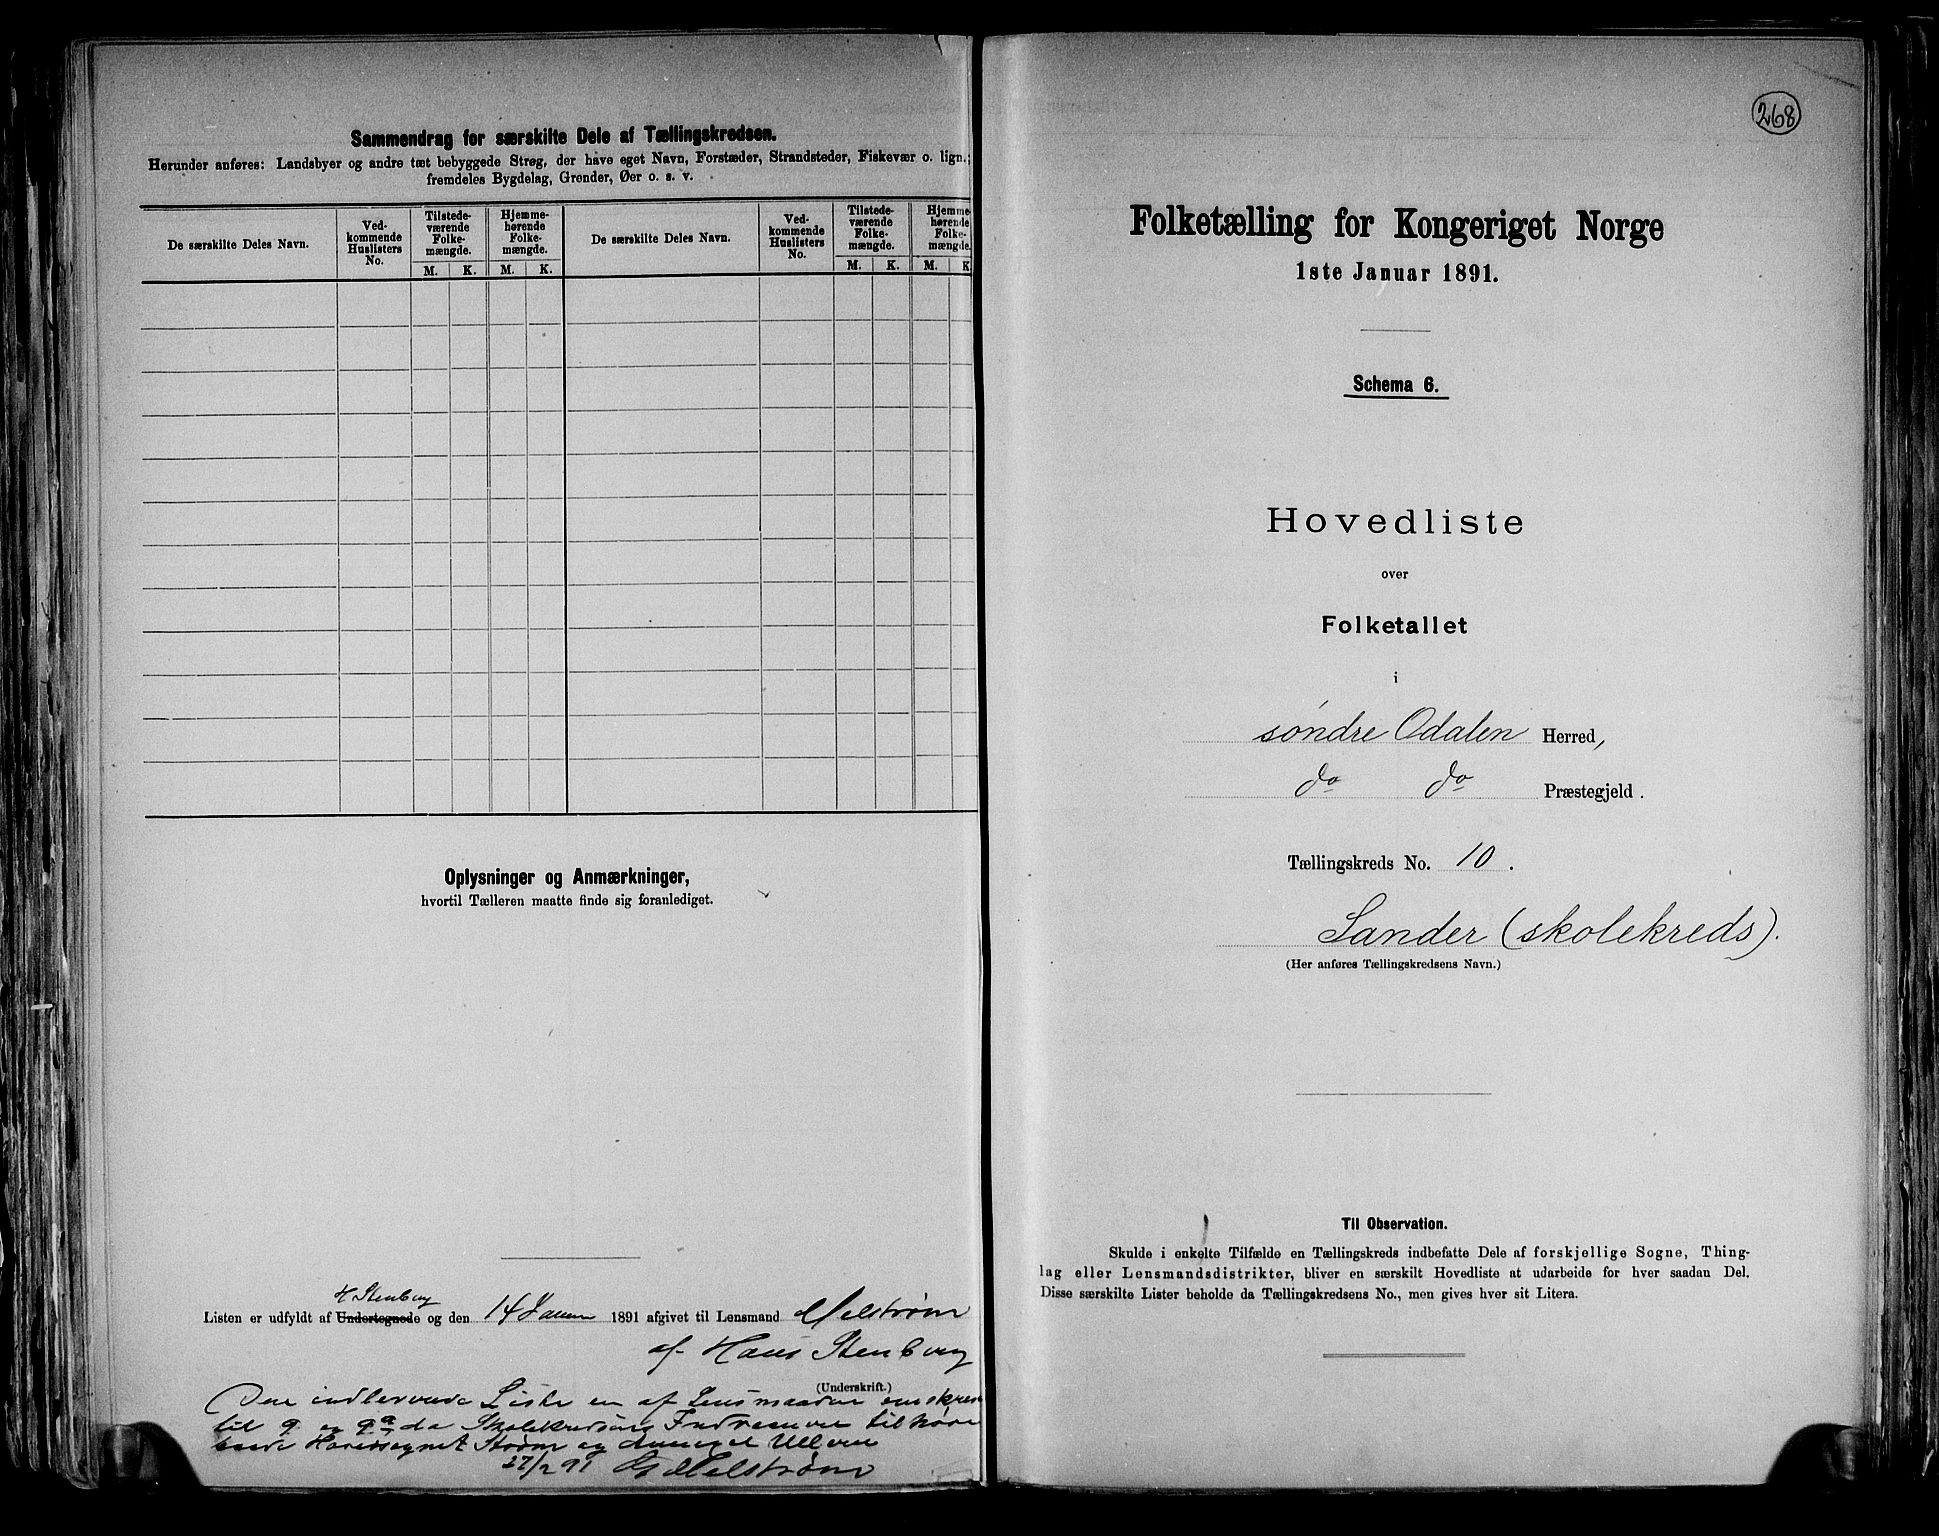 Sammendrag for særskilte Dele af Tællingskredsen.
Herunder anføres: Landsbyer og andre tæt bebyggede Strøg, der have eget Navn, Forstæder, Strandsteder, Fiskevær o. lign.;
fremdeles Bygdelag, Grender, Øer o. s. v.
De særskilte Deles Navn.
Ved-
kommende
Huslisters
No.
Tilstede-
værende
Folke-
mængde.
Hjemme-
hørende
Folke-
mængde.
M. K. M. K.
De særskilte Deles Navn.
Ved-
kommende
Huslisters
No.
Tilstede-
værende
Folke-
mængde.
Hjemme-
hørende
Folke-
mængde.
M. K. M. K
Oplysninger og Anmærkninger,
hvortil Tælleren maatte finde sig foranlediget.
H Stenberg
Listen er udfyldt af Undertegnede og den 14 Januar 1891 afgivet til Lensmand Melstrøm
af Hans Stenberg
(Underskrift.)
Den indleverede Liste er af Lensmanden omskrev
til 9 og 9a da Skolekredsens Indvaanere tilhøre
baade Hovedsognet Strøm og Annexet Ullern
27/2 91 Melstrøm
268
Folketælling for Kongeriget Norge
1ste Januar 1891.
Schema 6.
Hovedliste
over
Folketallet
i
søndre Odalen Herred,
do do Præstegjeld.
Tællingskreds No. 10.
Sander (skolekreds).
(Her anføres Tællingskredsens Navn.)
Til Observation.
Skulde i enkelte Tilfælde en Tællingskreds indbefatte Dele af forskjellige Sogne, Thing-
lag eller Lensmandsdistrikter, bliver en særskilt Hovedliste at udarbeide for hver saadan Del.
Disse særskilte Lister beholde da Tællingskredsens No., men gives hver sit Litera.